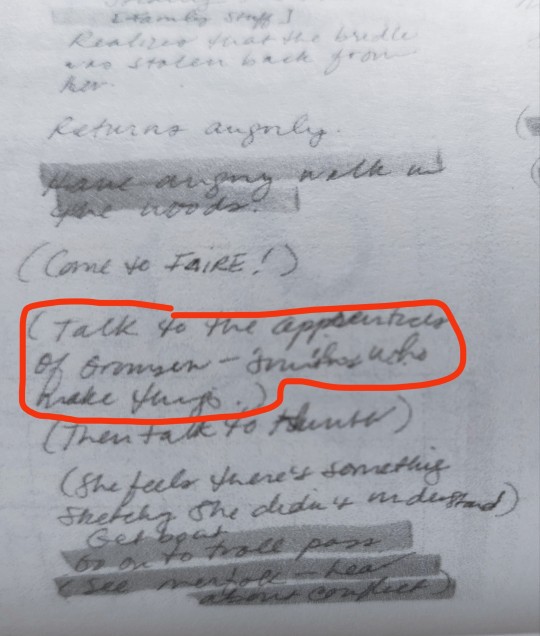 [Family stuff]
Realizes that the bridle
was stolen back from
her.
Returns angrily.
Have angry walk in
the woods.
(Come to FAIRE!)
(Talk to the apprentices
of - smiths who
make things.)
(Then talk to
(She feels there's something
sketchy she didn't understand)
Get boat
Go on to troll pass
(See merfolk - hear
about conflict)